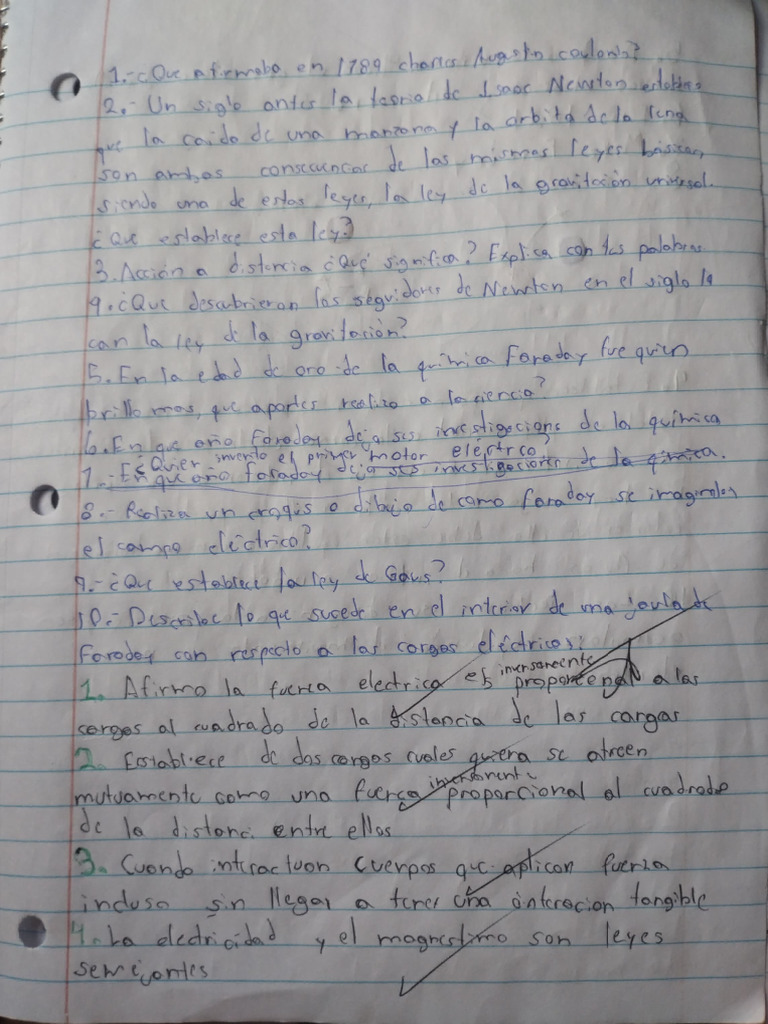 1.- ¿Que afirmaba en 1789 charles Augustin coulomb?
2.- Un siglo antes la teoria de Isaac Newton establece
que la caida de una manzana y la orbita de la luna
son ambos consecuencas de las mismas leyes basicas,
siendo una de estas leyes, la ley de la gravitación universal.
¿Que establece esta ley?
3. Acción a distancia ¿Qué significa? Explica con tus palabras
4. ¿Que descubrieron los seguidores de Newton en el siglo 19
can la ley de la gravitación?
5. En la edad de oro de la química Faraday fue quien
brillo mas, que aportes realizo a la ciencia?
6. En que año Faraday dejo ses investigacions de la química
7.- Quien invento el primer motor eléctrco?
En que año faraday dejo ses investigaciones de la química.
8.- Realiza un croquis o dibujo de como faraday se imaginaba
el campo eléctrico?
9.- ¿Que establece la ley de Gaus?
10.- Describe lo que sucede en el interior de una jaula de
Faraday con respecto a las cargas eléctricas:
1. Afirmo la fuerza electrica es inversamente proporcional a las
cargas al cuadrado de la distancia de las cargas
2. Establece de dos cargas cuales quiera se atraen
mutuamente como una fuerza inversamente proporcional al cuadrado
de la distanci entre ellas
3. Cuando interactuan cuerpos que aplican fuerza
incluso sin llegar a tener una interacion tangible
4. La electricidad y el magnetismo son leyes
semejantes